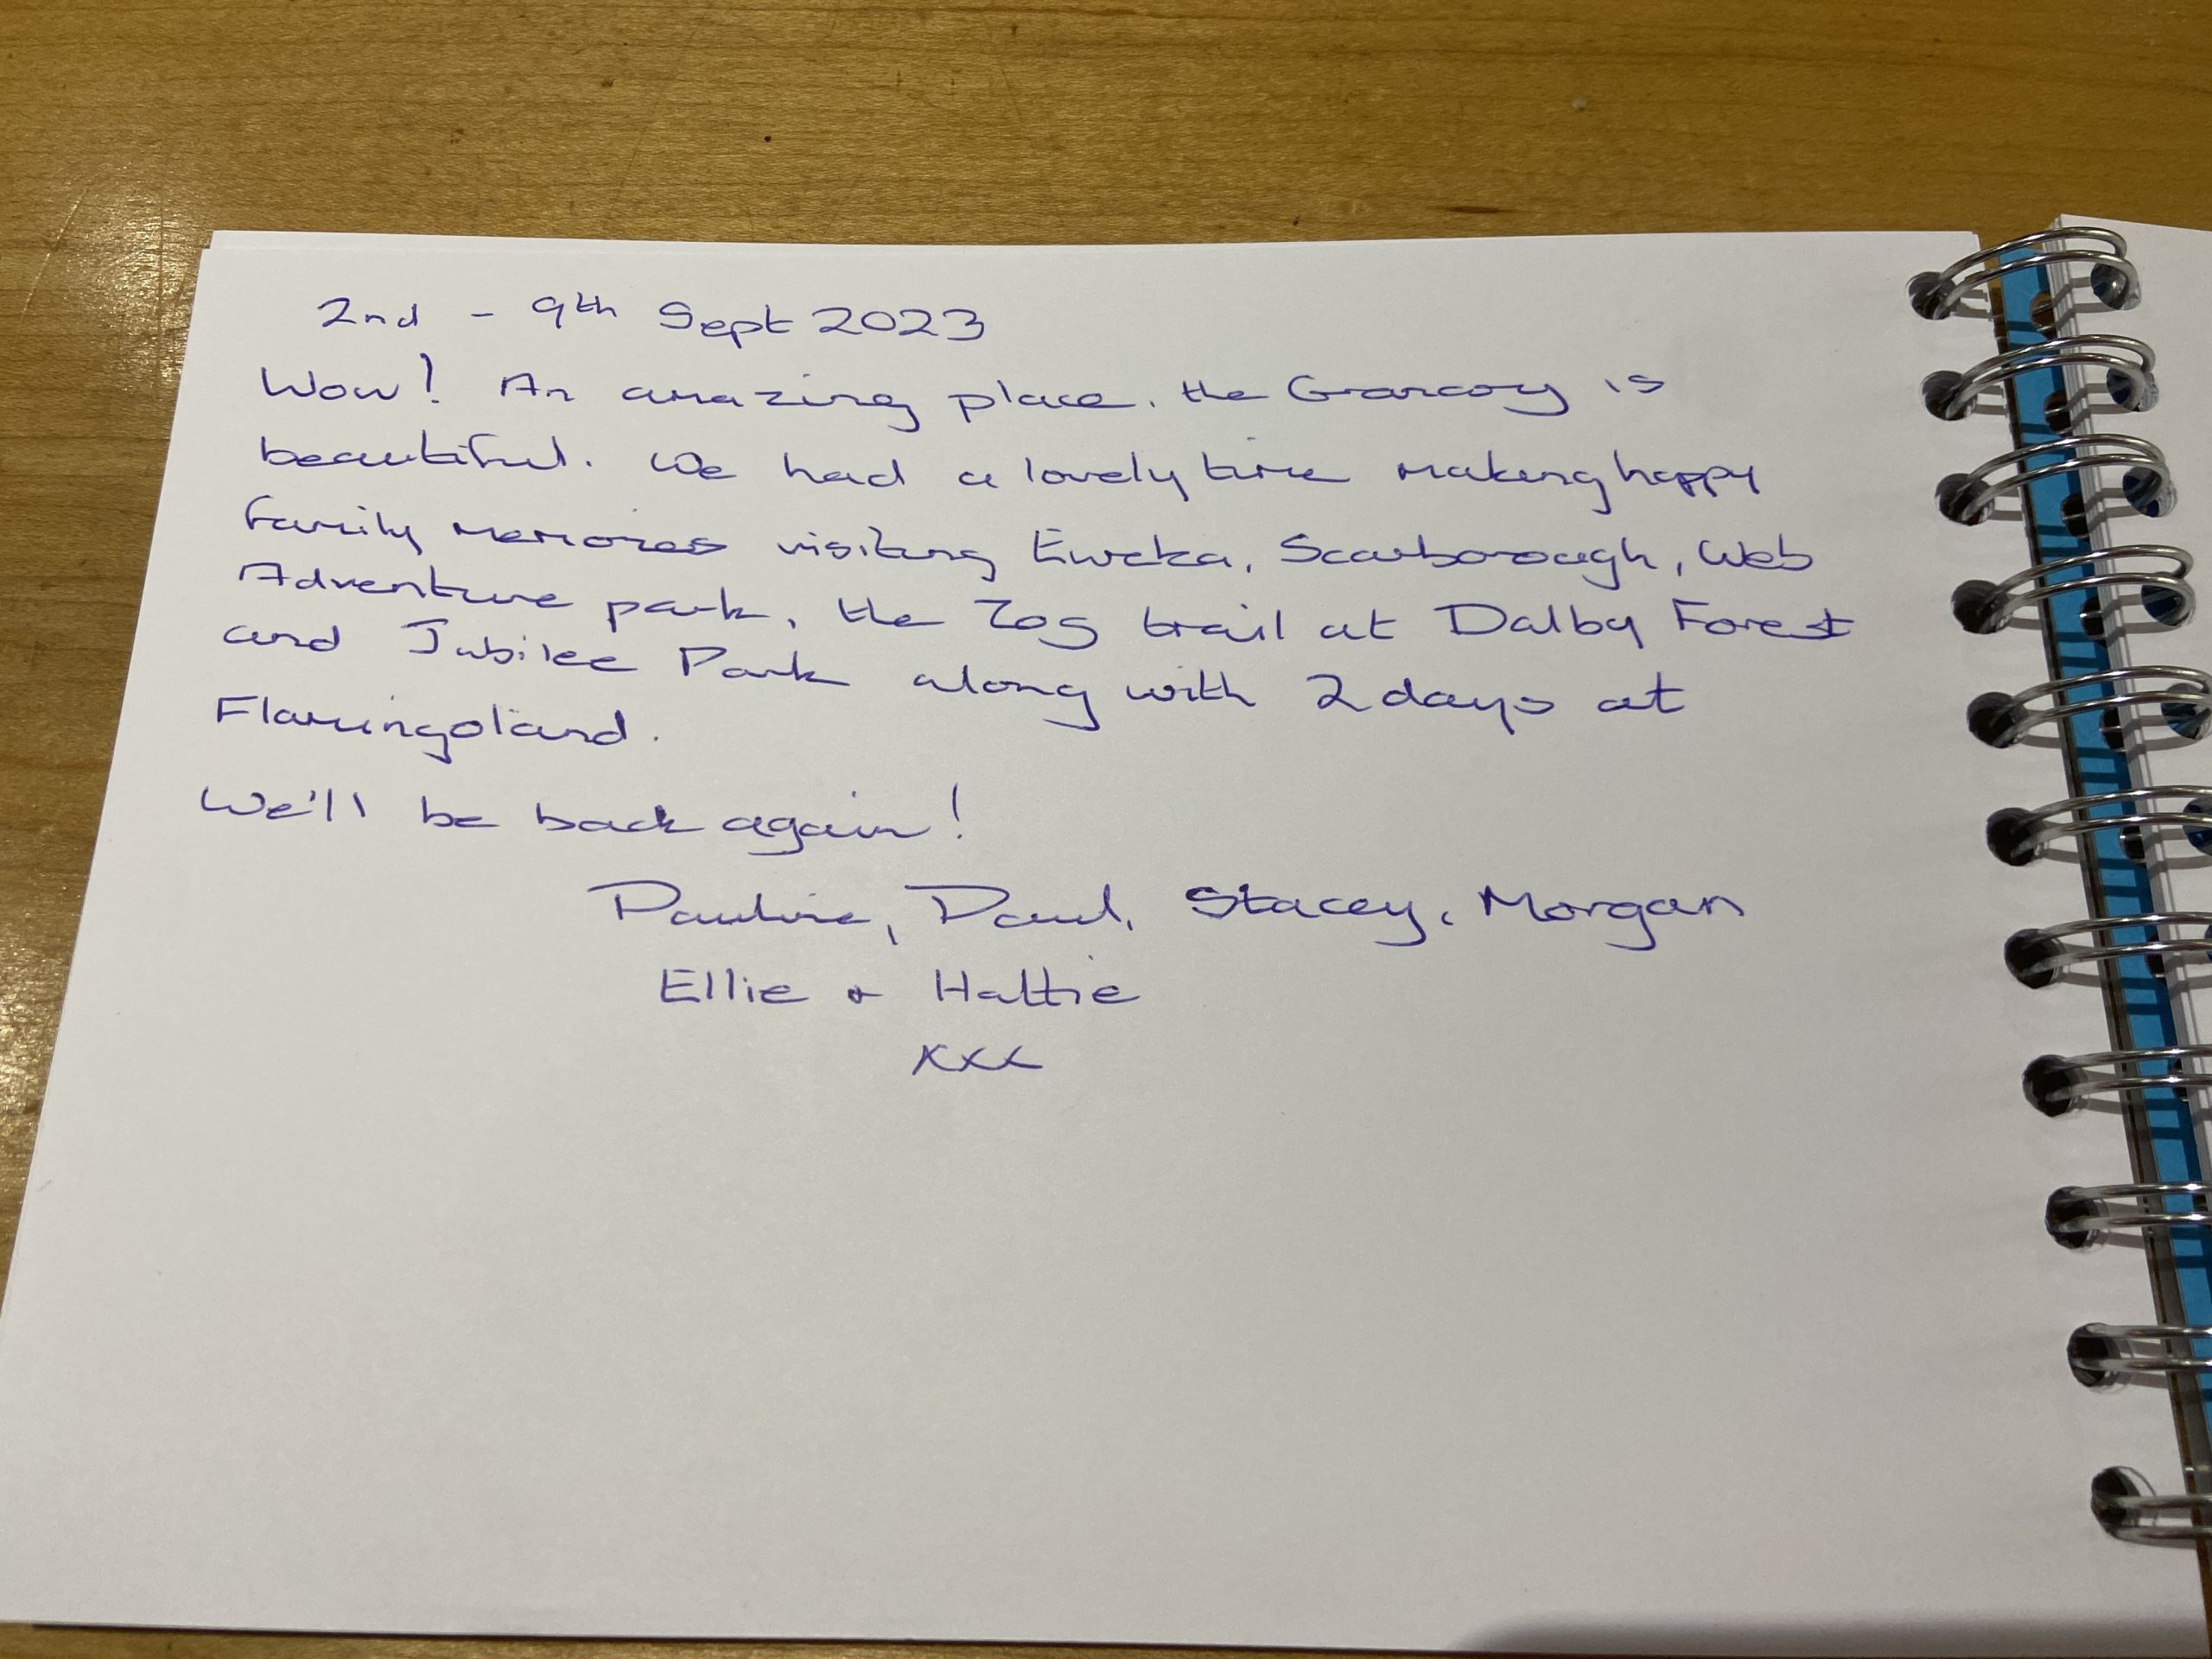 2nd - 9th Sept 2023
Wow! An amazing place, the Granary is
beautiful. We had a lovely time making happy
family memories visiting Eureka, Scarborough, Web
Adventure park, the Zog trail at Dalby Forest
and Jubilee Park along with 2 days at
Flamingoland.
We'll be back again!
Pauline, Paul, Stacey, Morgan
Ellie + Hattie
xxx